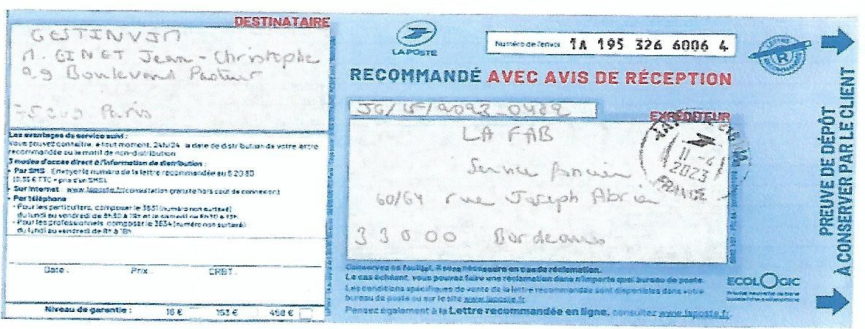 DESTINATAIRE
GESTINVIM
M. GINET Jean-Christophe
29 Boulevard Pasteur
Paris
Les avantages du service suivi :
Vous pouvez connaître, à tout moment, 24h/24, la date de distribution de votre lettre
recommandée ou le motif de non-distribution
3 modes d'accès direct à l'information de distribution :
• Par SMS : Envoyer le numéro de la lettre recommandée au 6 20 80
(0,35 € TTC + prix d'un SMS).
• Sur Internet : www.laposte.fr (consultation gratuite hors coût de connexion)
• Par téléphone
- Pour les particuliers, composer le 3631 (numéro non surtaxé)
du lundi au vendredi de 8h30 à 19h et le samedi de 8h30 à 13h
- Pour les professionnels, composer le 3634 (numéro non surtaxé)
du lundi au vendredi de 8h à 18h
Date : Prix : CRBT :
Niveau de garantie : 16 € 153 € 458 €
LA POSTE
Numéro de l'envoi : 1A 195 326 6006 4
LETTRE
R
RECOMMANDÉE
RECOMMANDÉ AVEC AVIS DE RÉCEPTION
EXPÉDITEUR
LA FAB
Service foncier
60/64 rue Joseph Abria
33000 Bordeaux
11-4
2023
FRANCE
Conservez ce feuillet, il sera nécessaire en cas de réclamation.
Le cas échéant, vous pouvez faire une réclamation dans n'importe quel bureau de poste.
Les conditions spécifiques de vente de la lettre recommandée sont disponibles dans votre
bureau de poste ou sur le site www.laposte.fr.
Pensez également à la Lettre recommandée en ligne, consultez www.laposte.fr.
ECOLOGIC
PREUVE DE DÉPÔT
À CONSERVER PAR LE CLIENT